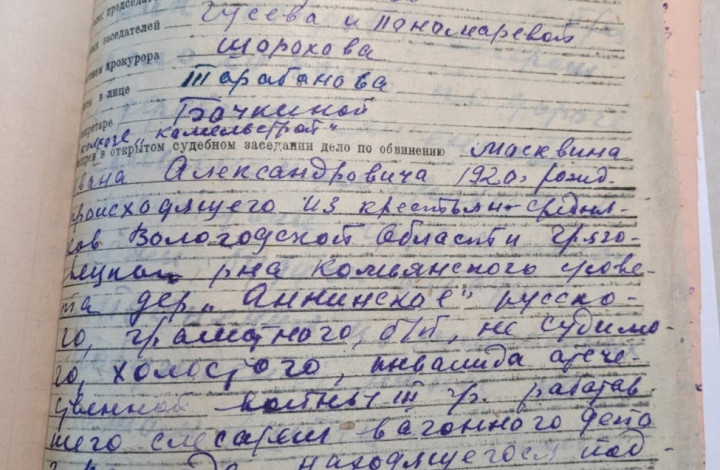 председат
Гусева и Панамаревой
заседателей
Шорохова
прокурора
в лице Тарабанова
секретаре Бочкиной
колхозе "камельстрой"
в открытом судебном заседании дело по обвинению Масквина
вана Александровича 1920г рожд.
роисходящего из крестьян-средня-
ков Вологодской области Грязо-
вецкого рна Комьянского с/сове-
та дер. "Аннинское" русско-
го, грамотного, б/п, не судимо-
го, холостого, инвалида отече-
ственной войны III гр. работав-
шего слесарем вагонного депо
находящегося под-